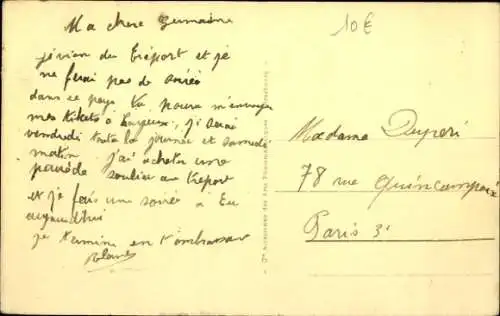 Ma chere Germaine
10€
je vien du Tréport et je
ne ferai pas de soiré
dans ce pays tu poura m'envoyer
mes tikets à Cayeux, j'i serai
vendredi toute la journée et samedi
matin. j'ai acheter une
soulier au treport
et je fais une soirée à Eu
aujourd'hui
je termine en t'embrassan
Madame
78 rue Quincampoix
Paris 3e